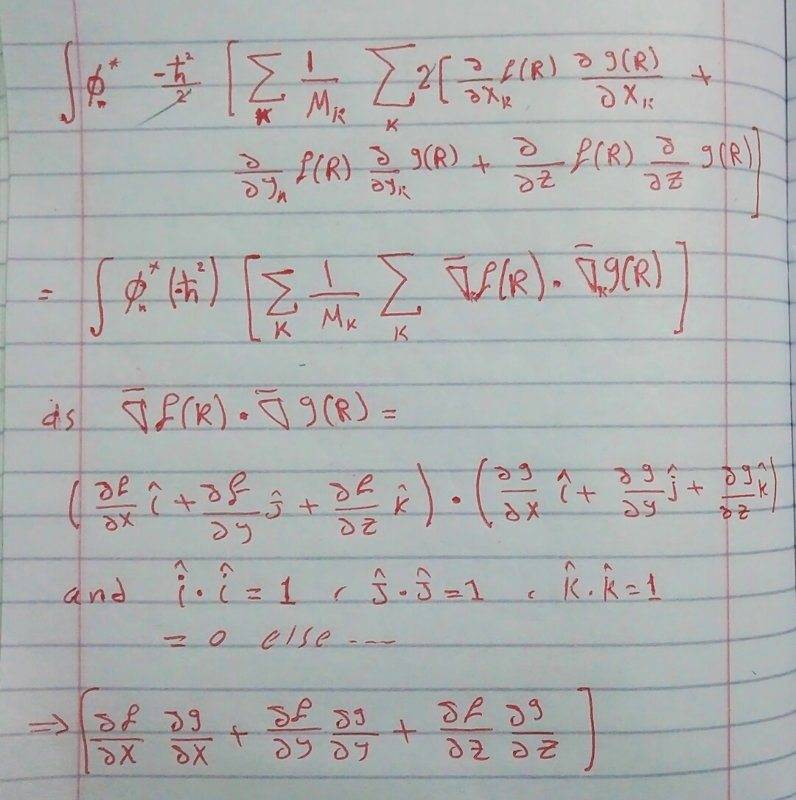 ∫ φₙ* -ħ²/2 [ ∑_K 1/M_K ∑_K 2[ ∂/∂X_K f(R) ∂g(R)/∂X_K +
∂/∂y_K f(R) ∂/∂y_K g(R) + ∂/∂z f(R) ∂/∂z g(R) ]
= ∫ φₙ* (-ħ²) [ ∑_K 1/M_K ∑_K ∇̄_K f(R) · ∇̄_K g(R) ]
as ∇̄ f(R) · ∇̄ g(R) =
( ∂f/∂x î + ∂f/∂y ĵ + ∂f/∂z k̂ ) · ( ∂g/∂x î + ∂g/∂y ĵ + ∂g/∂z k̂ )
and î · î = 1 , ĵ · ĵ = 1 , k̂ · k̂ = 1
= 0 else ---
⇒ [ ∂f/∂x ∂g/∂x + ∂f/∂y ∂g/∂y + ∂f/∂z ∂g/∂z ]